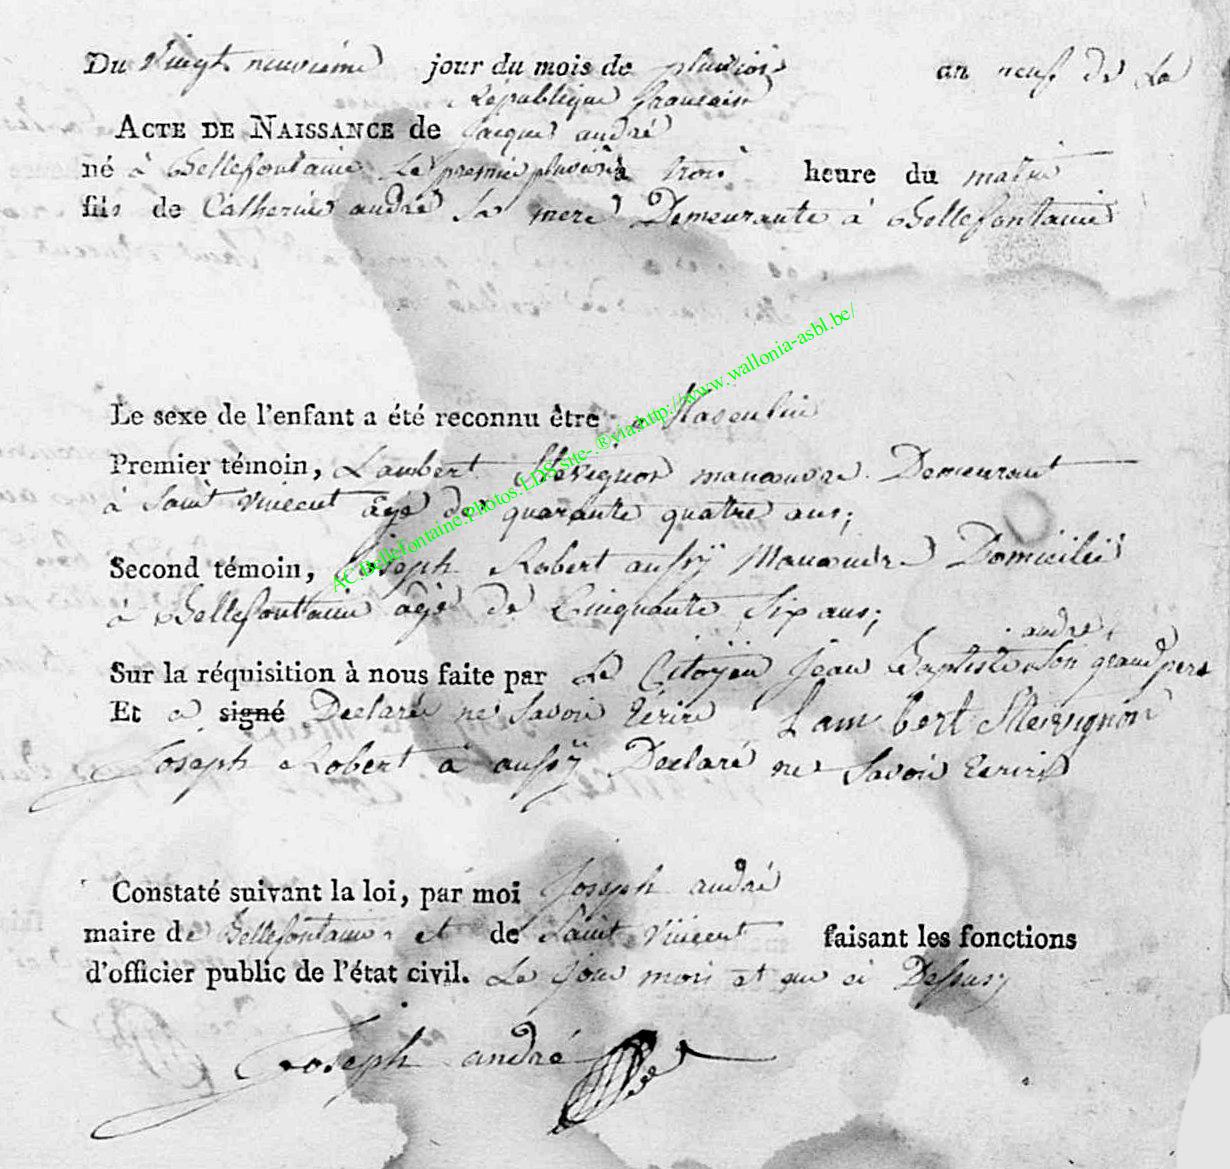 Du Vingt neuvième jour du mois de pluviôse an neuf de la
République française
ACTE DE NAISSANCE de Jacque andré
né à Bellefontaine le premier pluviôse à trois heure du matin
fils de Catherine andré sa mere Demeurante à Bellefontaine
Le sexe de l'enfant a été reconnu être Masculin
Premier témoin, Lambert manœuvre Demeurant
à Saint Vincent âgé de quarante quatre ans;
Second témoin, Joseph Robert aussÿ Manœuvre Domicilié
à Bellefontaine âgé de Cinquante Six ans;
andré
Sur la réquisition à nous faite par le Citoÿen Jean Baptiste son grand pere
Et a signé Declaré ne Savoir Ecrire Lambert
Joseph Robert à aussÿ Declaré ne Savoir Ecrire
Constaté suivant la loi, par moi Joseph andré
maire de Bellefontaine et de Saint Vincent faisant les fonctions
d'officier public de l'état civil. Le jour mois et an ci Dessus,
Joseph andré
AC.Bellefontaine.Photos.LDS.site-.®via:http://www.wallonia-asbl.be/